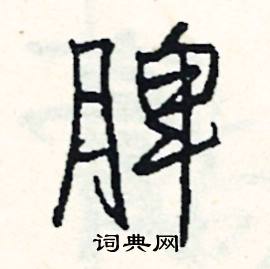 脾
词典网